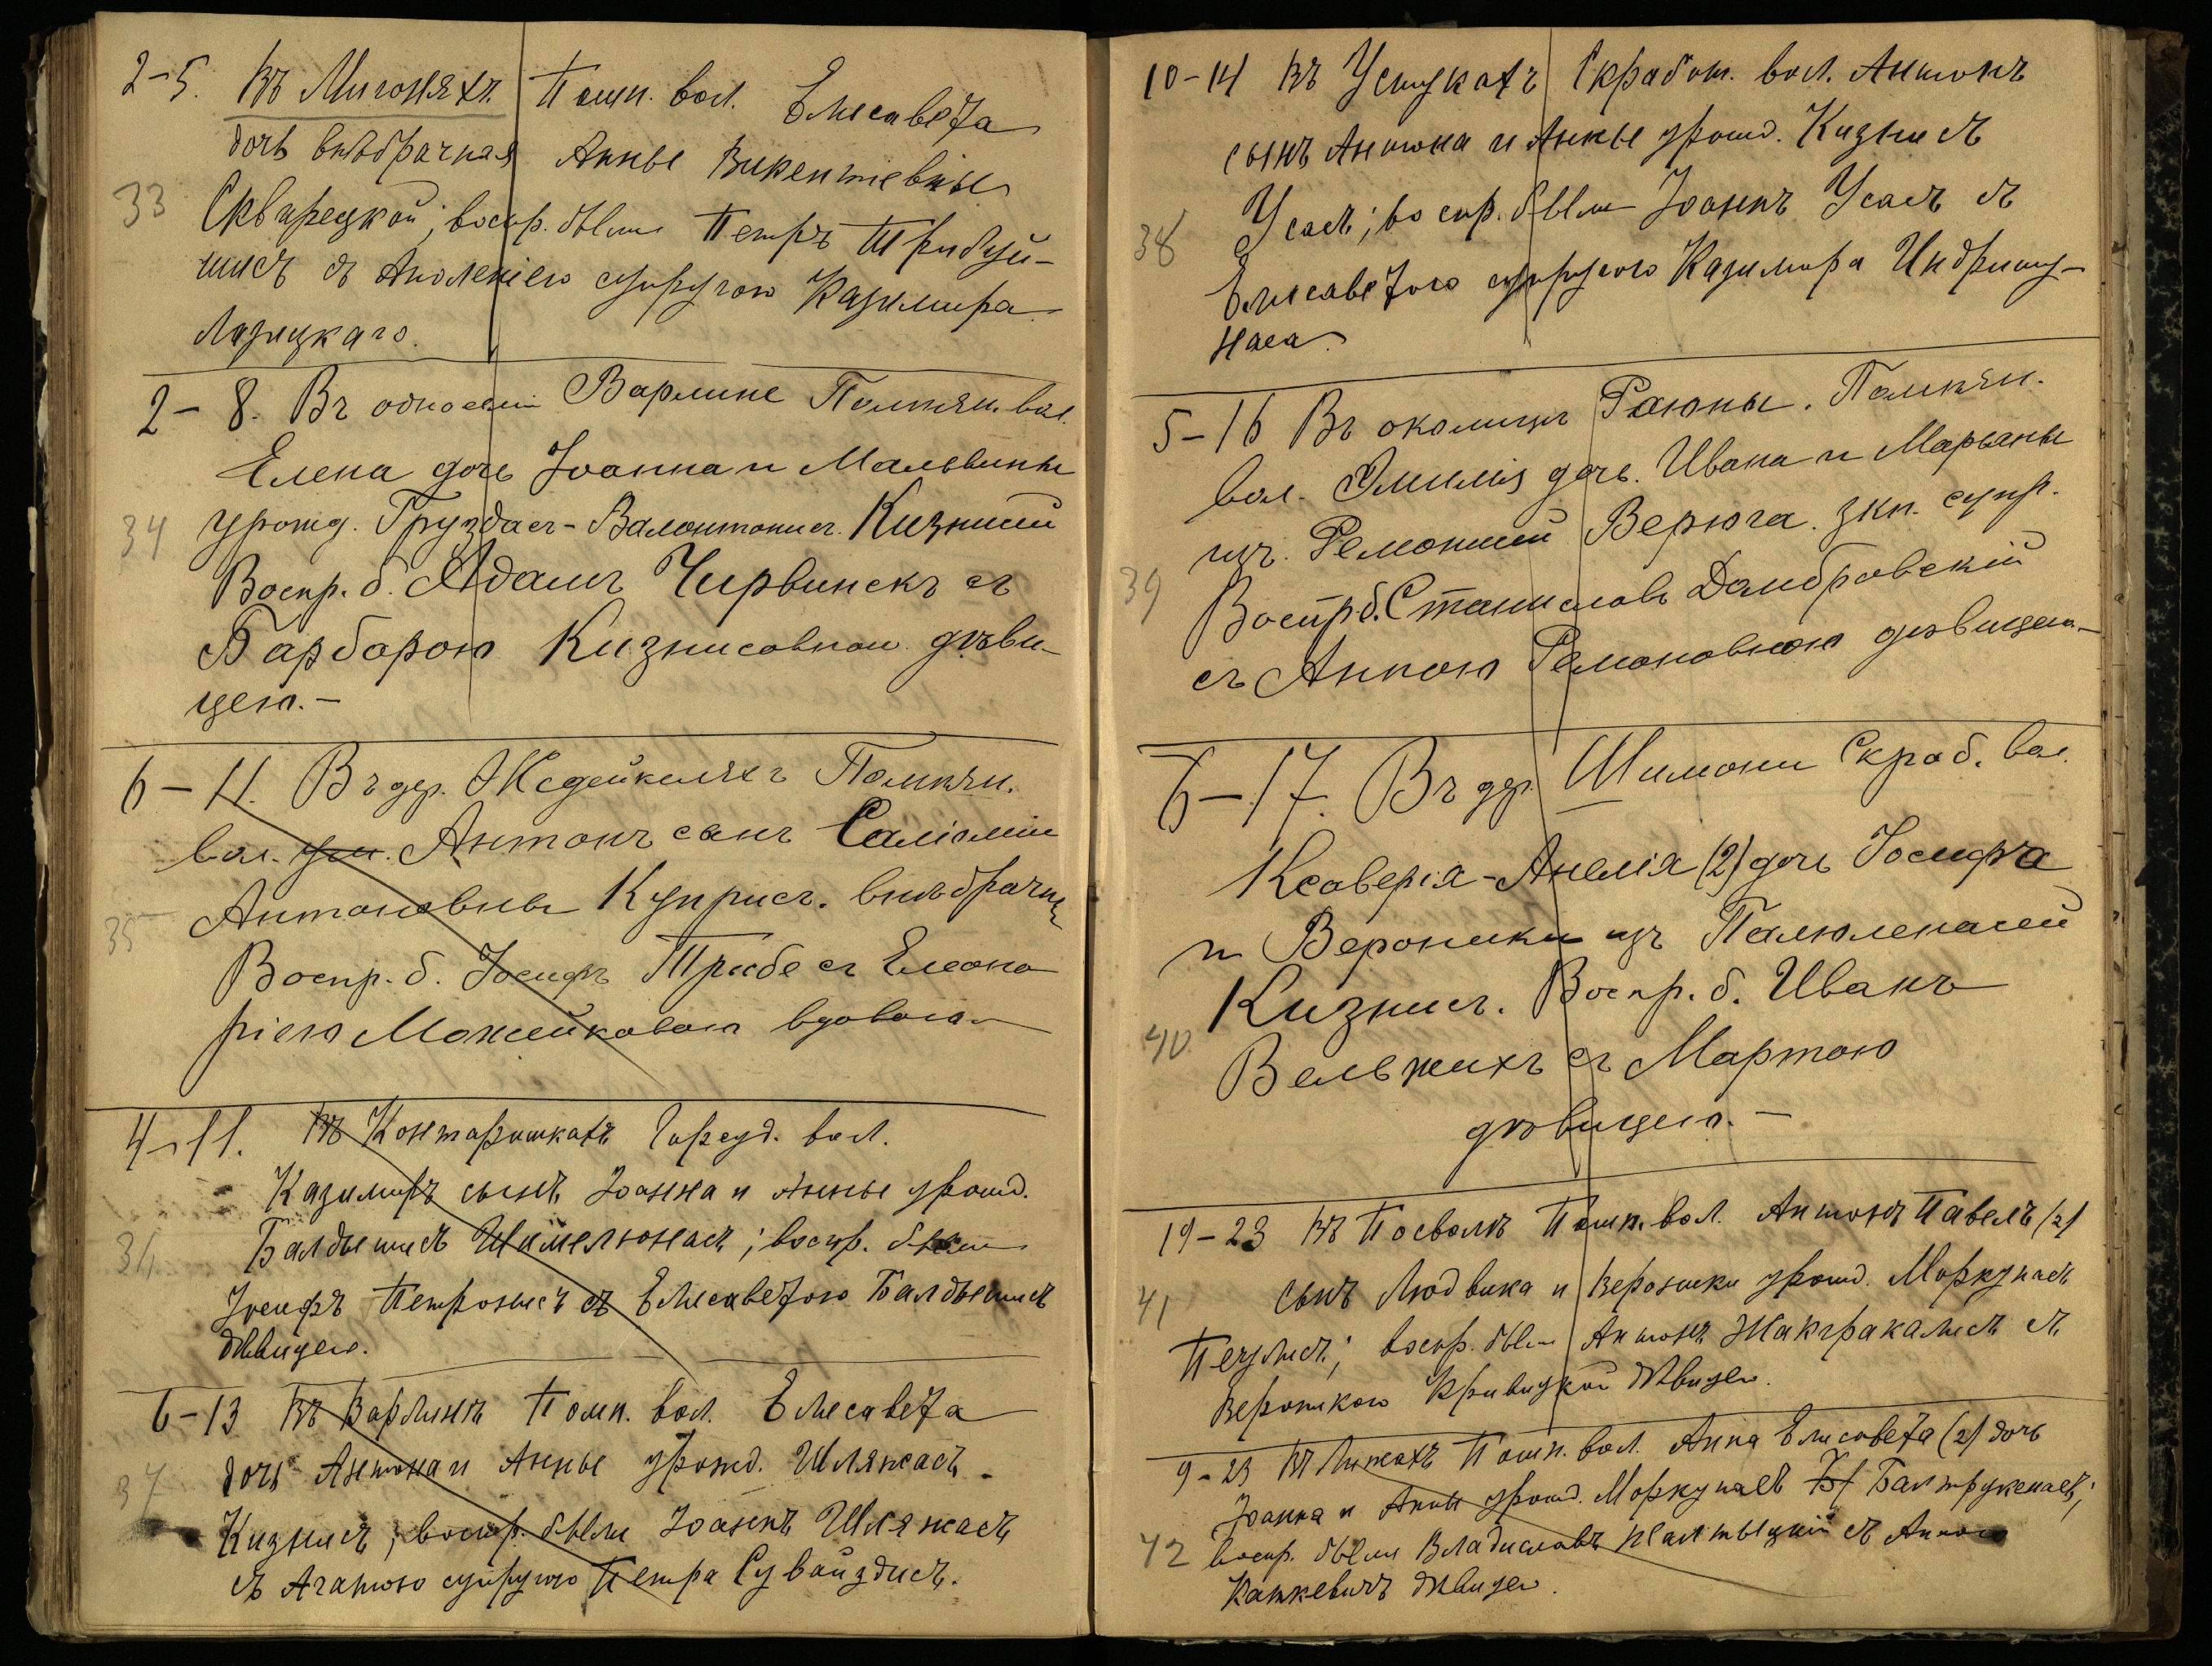 2-5. Въ Мигоняхъ Помп. вол. Елисавета
дочь внѣбрачная Анны Викентіевны
33
Скварецкой; воспр. были Петръ Трибуй-
шисъ съ Аполеніею супругою Казимира
Лазицкаго.
2-8. Въ односел. Варлине Помпян. вол.
Елена дочь Іоанна и Мальвины
34 урожд. Груздасъ-Валонтонисъ. Кизниси
Воспр. б. Адамъ Чирвинскъ съ
Барборою Кизнисовною дѣви-
цею.-
6-11. Въ дер. Жедейкеляхъ Помпян.
вол. Антонъ сынъ Саломіи
35 Антоновны Куприсъ. внѣбрачн
Воспр. б. Іосифъ Трибе съ Елеоно
ріею Можейковою вдовою
4-11. Въ Контаришкахъ Гиргуд. вол.
Казимиръ сынъ Іоанна и Анны урожд.
36 Балдышисъ Шимелюнасъ; воспр. были
Іосифъ Петронисъ съ Елисаветою Балдышисъ
дѣвицею.
6-13 Въ Варлинѣ Помп. вол. Елисавета
37 дочь Антона и Анны урожд. Шляжасъ-
Кизнисъ; воспр. были Іоаннъ Шляжасъ
съ Агатою супругою Петра Сувайздисъ.
10-14 Въ Устукахъ Скработ. вол. Антонъ
сынъ Антона и Анны урожд. Кизнисъ
38 Усасъ; воспр. были Іоаннъ Усасъ съ
Елисаветою супругою Казимира Индришу-
наса.
5-16 Въ околицѣ Раюны. Помпян.
вол. Эмилія дочь Ивана и Марьяны
изъ Ремониси Верюга. зкп. супр.
39 Воспр б. Станиславъ Домбровскій
съ Анною Ремоновною дѣвицею-
6-17. Въ дер. Шимони Скраб. вол.
Ксаверія-Анелія (2) дочь Іосифа
и Вероники изъ Палюленасей
Кизнисъ. Воспр. б. Иванъ
40 Вельжихъ съ Мартою
дѣвицею.-
19-23 Въ Посволѣ Помп. вол. Антонъ Павелъ (2)
41 сынъ Людвика и Вероники урожд. Моркунасъ
Печулисъ; воспр. были Антонъ Жакгракалисъ съ
Вероникою Кривицкой дѣвицею.
9-23 Въ Помп. вол. Анна Елисавета (2) дочь
Іоанна и Анны урожд. Моркунасъ Балтрукенасъ;
42 воспр. были Владиславъ съ Анною
Каткевичъ дѣвицею.